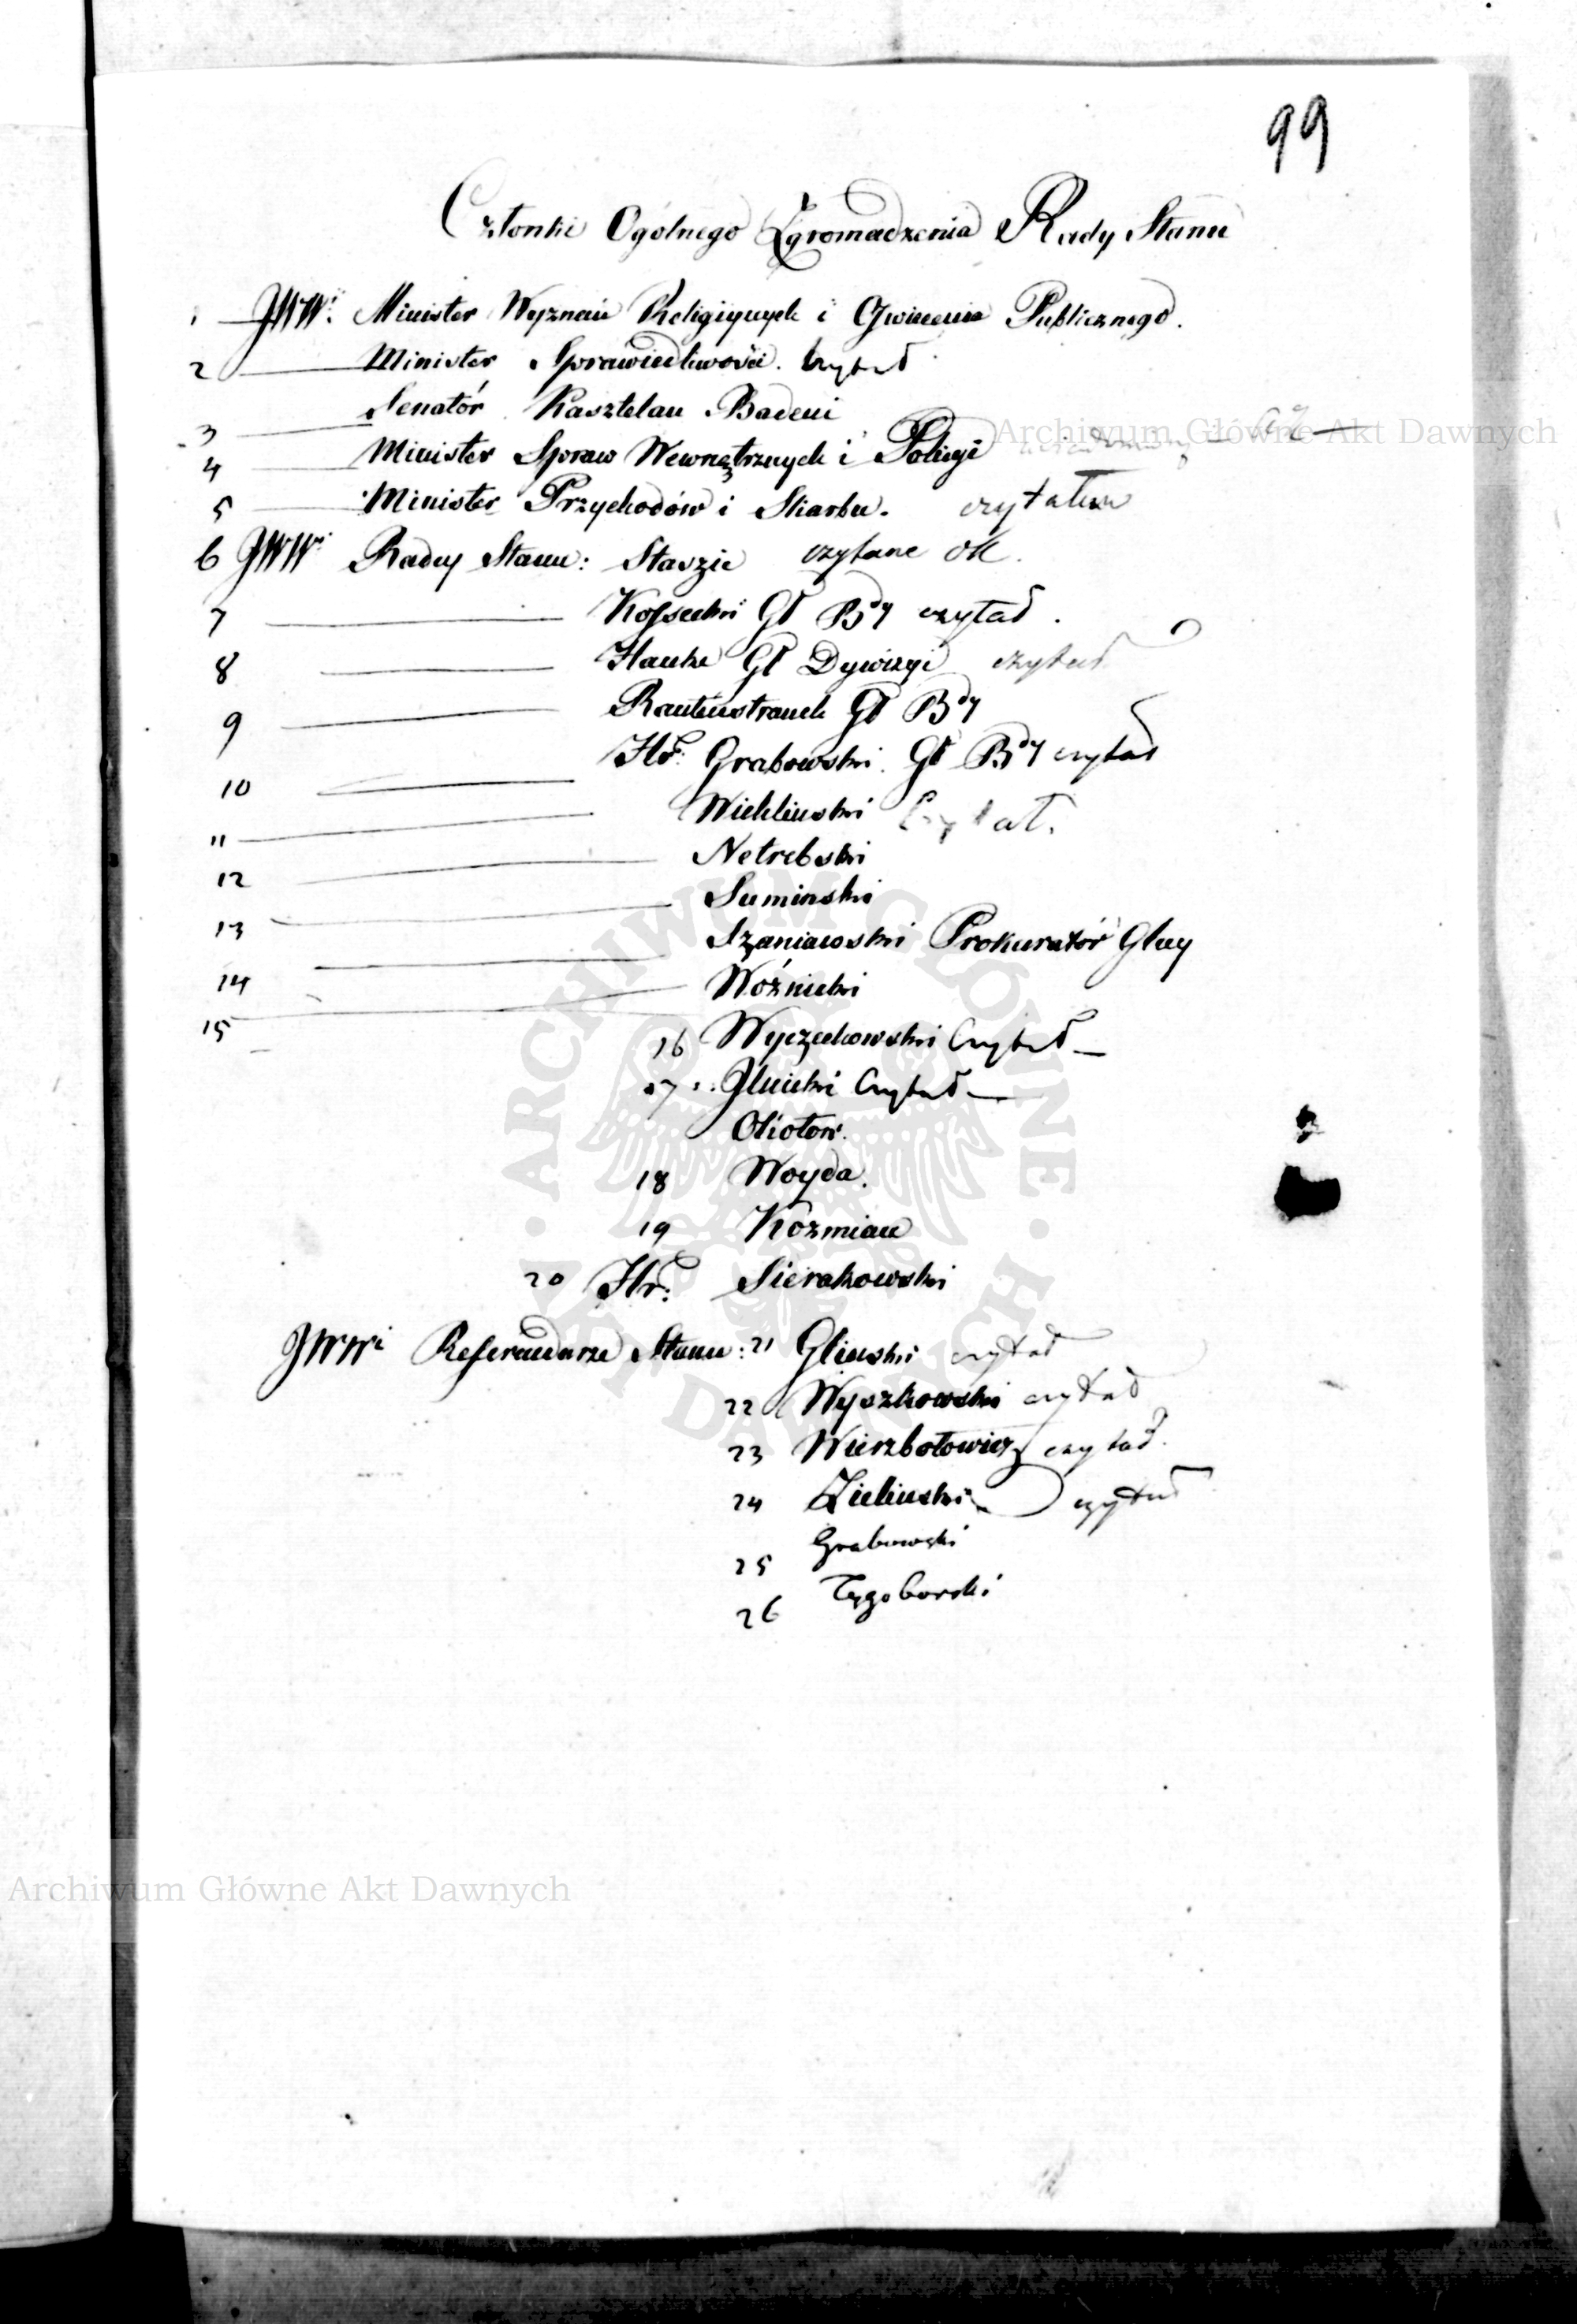 99
Członki Ogólnego Zgromadzenia Rady Stanu
1 JWWi: Minister Wyznań Religiynych i Oświecenia Publicznego.
2 Minister Sprawiedliwości. Czytał
3 Senatór Kasztelan Badeni
4 Minister Spraw Wewnętrznych i Policyi
5 Minister Przychodów i Skarbu. czytałem
6 JWWi Radcy Stanu: Staszic czytane
7 Kossecki Gł Bdy czytał.
8 Hauke Gł Dywizyi czytał
9 Rautenstrauch Gł Bdy
10 Hr: Grabowski Gł Bdy czytał
11 Wichlinski Czytał.
12 Netrebski
13 Suminski
14 Szaniawski Prokuratór Głny
15 Woźnicki
16 Wyczechowski Czytał
17 Jłnicki Czytał
Okołow.
18 Woyda.
19 Koźmian
20 Hr: Sierakowski
JWWi Referendarze Stanu: 21 Gliński czytał
22 Wyszkowski czytał
23 Wierzbołowicz czytał.
24 Zieliński czytał
25 Grabowski
26 Tęgoborski
Archiwum Główne Akt Dawnych
Archiwum Główne Akt Dawnych
ARCHIWUM GŁÓWNE AKT DAWNYCH